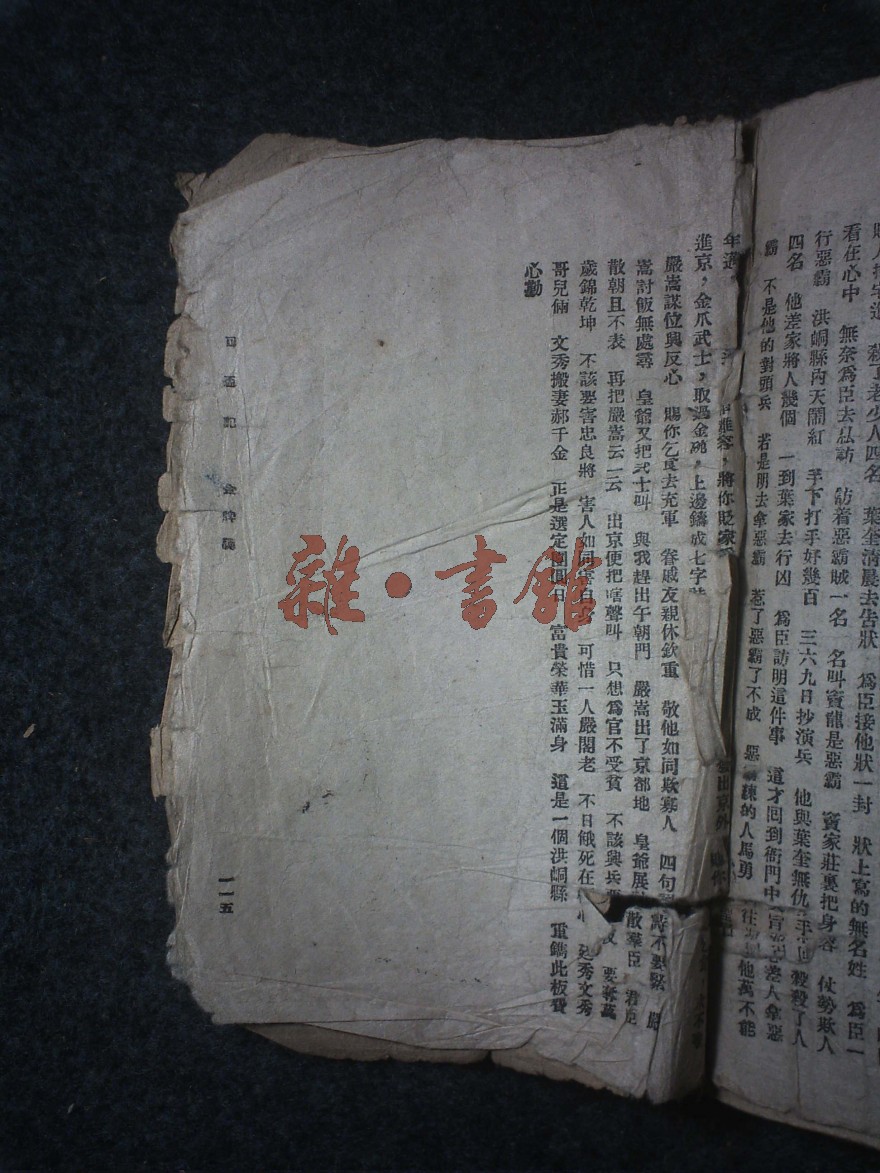 看在心中　無奈為臣去私訪　訪着惡霸賊一名　名叫竇龍是惡霸　竇家莊裏把身容　仗勢欺人
行惡霸　洪峒縣內天鬧紅　手下打手好幾百　三六九日抄演兵　他與葉奎無仇　殺了人
四名　他差家將人幾個　一到葉家去行凶　為臣訪明這件事　這才回到衙門中　差人拿惡
霸　不是他的對頭兵　若是明去拿惡霸　惹了惡霸了不成　惡霸練的人馬勇　他萬不能
年邁　將你貶家
進京，金爪武士，取過金碗，上邊鑄成七字
嚴嵩謀位與反心　賜你乞食去充軍　眷戚友親休欽重　敬他如同欺寡人　四句
嵩討飯無處尋　皇爺又把武士叫　與我趕出午朝門　嚴嵩出了京都地　皇爺展　散羣臣　君臣
散朝且不表　再把嚴嵩云一云　出京便把嗐聲叫　只想為官不受貧　不該與兵　要奪萬
歲錦乾坤　不該要害忠良將　害人如同害自　可惜一人嚴閣老　不日餓死在　廷秀文秀
哥兒倆　文秀搬妻郝千金　正是選定團圓日　富貴榮華玉滿身　這是一個洪峒縣　重鐫此板費
心勤
回盃記　金牌
一一五
雜·書館